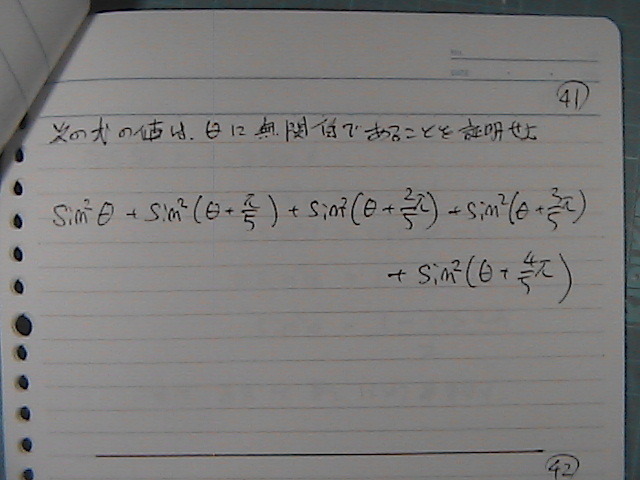 41
次の式の値は、θに無関係であることを証明せよ
sin²θ + sin²(θ+π/5) + sin²(θ+2/5π) + sin²(θ+3/5π)
+ sin²(θ+4/5π)
42